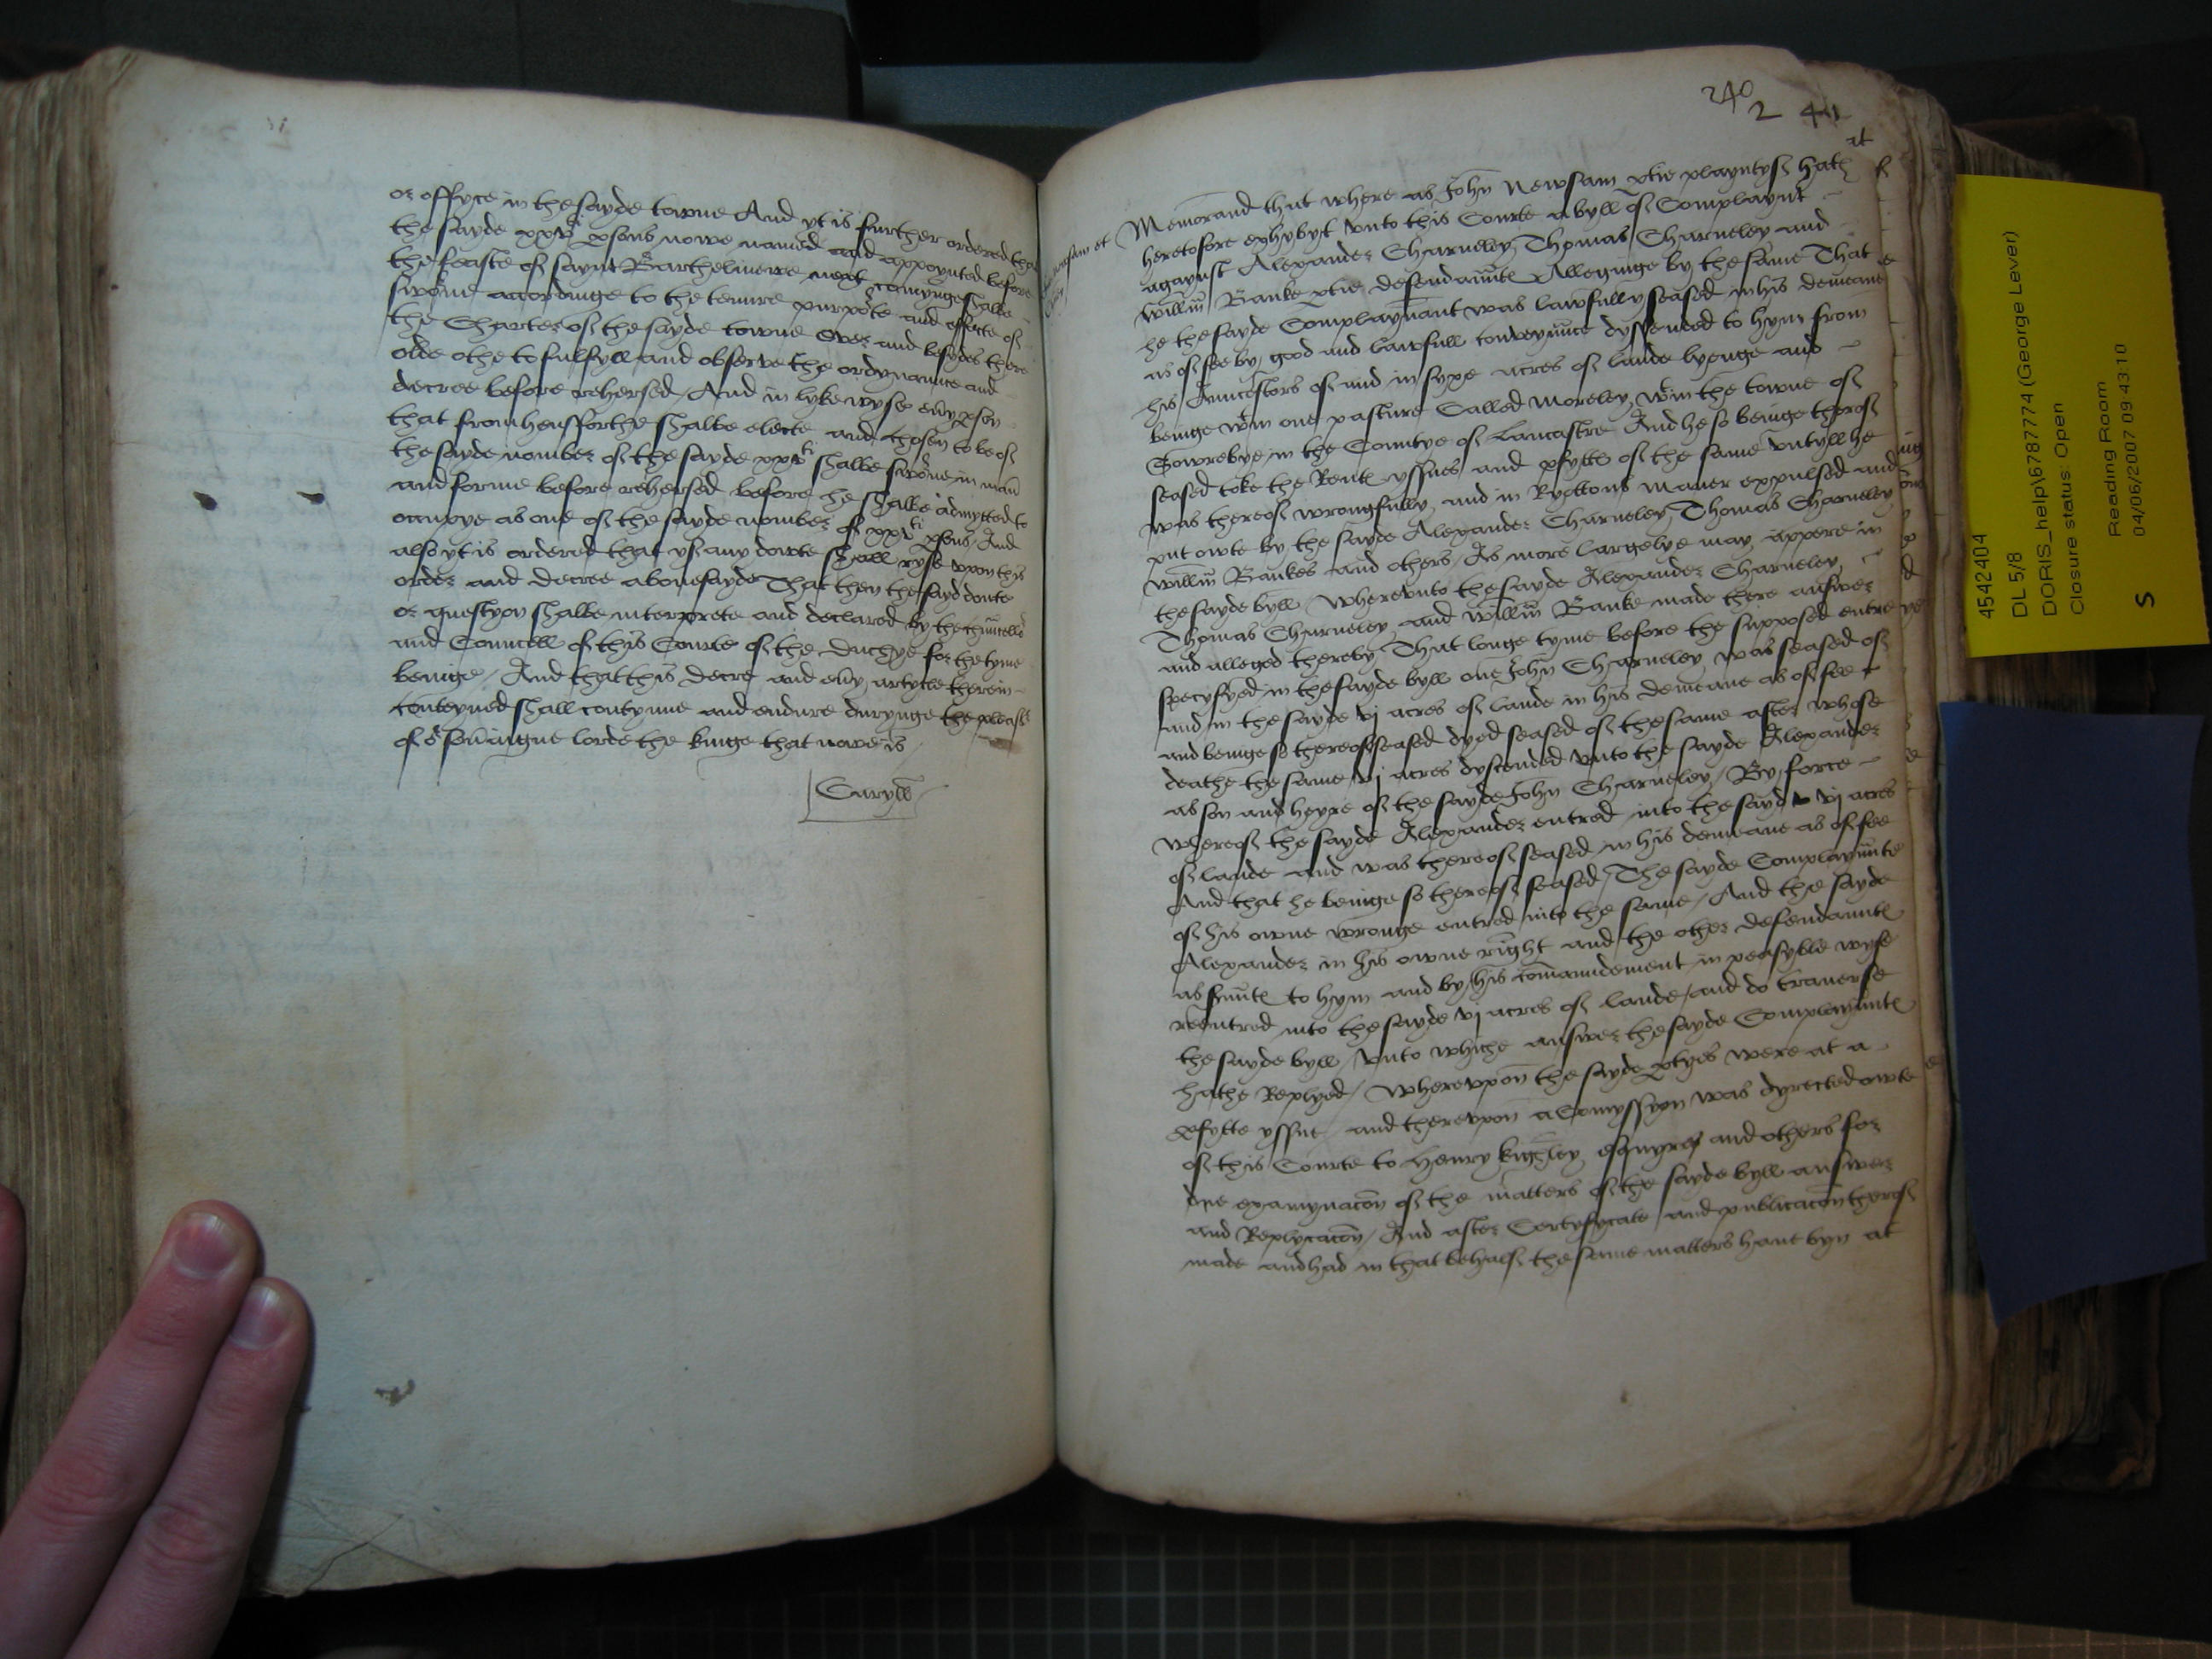 or offyce in the sayde towne And yt is further ordered that
the sayde xxv^ti psons nowe named and appoynted before
the feaste of saynt Barthelmewe next comynge shalbe
sworne accordinge to the tenure purporte and effecte of
the Charter of the sayde towne over and besydes there
olde othe to fulfyll and observe the ordynaunce and
decree before rehersed / And in lyke wyse evy pson
that from hensforthe shalbe electe and chosen to be of
the sayde nomber of the sayde xxv^ti shalbe sworne in man
and forme before rehersed before he shalbe admytted to
occupye as one of the sayde nomber of xxv^ti psons / And
also yt is ordered that yf any dowte shall ryse vpon this
order and decree abouesayde That then the sayd doute
or questyon shalbe interprete and declared by the
and Councell of this Courte of the Duchye for the tyme
beinge / And that this decre and evy artycle therein
conteyned shall contynue and endure durynge the pleas
of o^r sov'aigne lorde the kinge that nowe is
Caryll
240
2 41
Newsam et
Memorand that where as John Newsam ptie playntyf hath
heretofore exhybyt vnto this Courte a byll of Complaynt
agaynst Alexander Charneley Thomas Charneley and
Willm Banke ptie defendaunte Alleginge by the same That
he the sayde Complaynant was lawfully seased in his demeane
as of fee by good and lawfull conveyaunce dyssended to hym from
his Auncestors of and in syxe acres of lande lyenge and
beinge w^tin one pasture Called Moreley w^tin the towne of
Sowrebye in the Countye of Lancastre And he so beinge therof
seased toke the Rent yssues and pfytte of the same vntyll he
was thereof wrongfully and in Ryottous maner expulsed and
put owte by the sayde Alexander Charneley Thomas Charneley
Willm Bankes and others / As more largelye may appere in
the sayde byll / Wherevnto the sayde Alexander Charneley
Thomas Charneley and Willm Banke made there answer
and alleged thereby That longe tyme before the supposed entre
specyfyed in the sayde byll one John Charneley was seased of
and in the sayde vj acres of lande in his demeane as of fee
and beinge so thereof seased dyed seased of the same after whose
deathe the same vj acres dyscended vnto the sayde Alexander
as son and heyre of the sayde John Charneley / By force
whereof the sayde Alexander entred into the sayd vj acres
of lande and was thereof seased in his demeane as of fee
And that he beinge so thereof seased / The sayde Complaynunte
of his owne wronge entred into the same / And the sayde
Alexander in his owne right and the other defendaunte
as svnte to hym and by his comaundement in peasyble wyse
reentred into the sayde vj acres of lande / and do traverse
the sayde byll / vnto whiche answer the sayde Complaynunte
hathe Replyed / Wherevpon the sayde ptyes were at a
pfytte yssue / and therevpon a Comyssyon was dyrected owte
of this Courte to Henry Kighley esquyre and others for
due examynacon of the matters of the sayde byll answer
and Replycacon / And after Certyfycate and publicacon therof
made and had in that behalf the same matters haue byn at
4542404
DL 5/8
DORIS_help\6787774 (George Lever)
Closure status: Open
Reading Room
S 04/06/2007 09:43:10